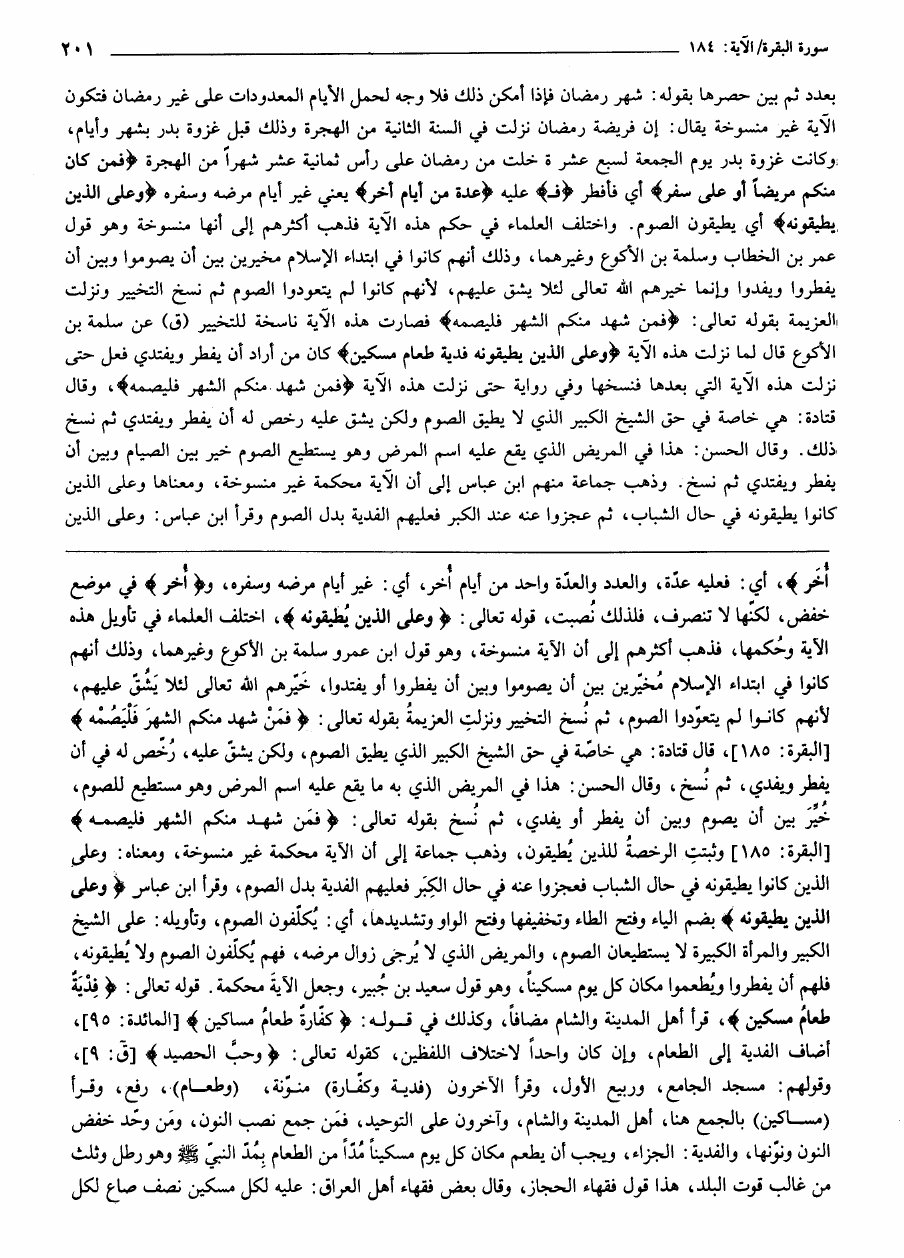 سورة البقرة/ الآية: ١٨٤ ٢٠١
بعدد ثم بين حصرها بقوله: شهر رمضان فإذا أمكن ذلك فلا وجه لحمل الأيام المعدودات على غير رمضان فتكون
الآية غير منسوخة يقال: إن فريضة رمضان نزلت في السنة الثانية من الهجرة وذلك قبل غزوة بدر بشهر وأيام،
وكانت غزوة بدر يوم الجمعة لسبع عشر ة خلت من رمضان على رأس ثمانية عشر شهراً من الهجرة ﴿فمن كان
منكم مريضاً أو على سفر﴾ أي فأفطر ﴿فـ﴾ عليه ﴿عدة من أيام أخر﴾ يعني غير أيام مرضه وسفره ﴿وعلى الذين
يطيقونه﴾ أي يطيقون الصوم. واختلف العلماء في حكم هذه الآية فذهب أكثرهم إلى أنها منسوخة وهو قول
عمر بن الخطاب وسلمة بن الأكوع وغيرهما، وذلك أنهم كانوا في ابتداء الإسلام مخيرين بين أن يصوموا وبين أن
يفطروا ويفدوا وإنما خيرهم الله تعالى لئلا يشق عليهم، لأنهم كانوا لم يتعودوا الصوم ثم نسخ التخيير ونزلت
العزيمة بقوله تعالى: ﴿فمن شهد منكم الشهر فليصمه﴾ فصارت هذه الآية ناسخة للتخيير (ق) عن سلمة بن
الأكوع قال لما نزلت هذه الآية ﴿وعلى الذين يطيقونه فدية طعام مسكين﴾ كان من أراد أن يفطر ويفتدي فعل حتى
نزلت هذه الآية التي بعدها فنسختها وفي رواية حتى نزلت هذه الآية ﴿فمن شهد منكم الشهر فليصمه﴾، وقال
قتادة: هي خاصة في حق الشيخ الكبير الذي لا يطيق الصوم ولكن يشق عليه رخص له أن يفطر ويفتدي ثم نسخ
ذلك. وقال الحسن: هذا في المريض الذي يقع عليه اسم المرض وهو يستطيع الصوم خير بين الصيام وبين أن
يفطر ويفتدي ثم نسخ. وذهب جماعة منهم ابن عباس إلى أن الآية محكمة غير منسوخة، ومعناها وعلى الذين
كانوا يطيقونه في حال الشباب، ثم عجزوا عنه عند الكبر فعليهم الفدية بدل الصوم وقرأ ابن عباس: وعلى الذين
أُخَر ﴾، أي: فعليه عدّة، والعدد والعدّة واحد من أيام أُخر، أي: غير أيام مرضه وسفره، و﴿ أُخر ﴾ في موضع
خفض، لكنّها لا تنصرف، فلذلك نُصبت، قوله تعالى: ﴿ وعلى الذين يُطيقونه ﴾، اختلف العلماء في تأويل هذه
الآية وحُكمها، فذهب أكثرهم إلى أن الآية منسوخة، وهو قول ابن عمرو سلمة بن الأكوع وغيرهما، وذلك أنهم
كانوا في ابتداء الإسلام مُخيّرين بين أن يصوموا وبين أن يفطروا أو يفتدوا، خَيّرهم الله تعالى لئلا يَشُقّ عليهم،
لأنهم كانـوا لم يتعوّدوا الصوم، ثم نُسخ التخيير ونزلتِ العزيمةُ بقوله تعالى: ﴿ فمَنْ شهد منكم الشهرَ فَلْيَصُمْه ﴾
[البقرة: ١٨٥]، قال قتادة: هي خاصّة في حق الشيخ الكبير الذي يطيق الصوم، ولكن يشقّ عليه، رُخّص له في أن
يفطر ويفدي، ثم نُسخ، وقال الحسن: هذا في المريض الذي به ما يقع عليه اسم المرض وهو مستطيع للصوم،
خُيِّرَ بين أن يصوم وبين أن يفطر أو يفدي، ثم نُسخ بقوله تعالى: ﴿ فمَن شهـد منكم الشهر فليصمـه ﴾
[البقرة: ١٨٥] وثبتتِ الرخصةُ للذين يُطيقون، وذهب جماعة إلى أن الآية محكمة غير منسوخة، ومعناه: وعلى
الذين كانوا يطيقونه في حال الشباب فعجزوا عنه في حال الكِبَر فعليهم الفدية بدل الصوم، وقرأ ابن عباس ﴿ وعلى
الذين يطيقونه ﴾ بضم الياء وفتح الطاء وتخفيفها وفتح الواو وتشديدها، أي: يُكلّفون الصوم، وتأويله: على الشيخ
الكبير والمرأة الكبيرة لا يستطيعان الصوم، والمريض الذي لا يُرجى زوال مرضه، فهم يُكلّفون الصوم ولا يُطيقونه،
فلهم أن يفطروا ويُطعموا مكان كل يوم مسكيناً، وهو قول سعيد بن جُبير، وجعل الآيةَ محكمة. قوله تعالى: ﴿ فِدْيَةٌ
طعامُ مسكين ﴾، قرأ أهل المدينة والشام مضافاً، وكذلك في قـولـه: ﴿ كفّارةُ طعامُ مساكين ﴾ [المائدة: ٩٥]،
أضاف الفدية إلى الطعام، وإن كان واحداً لاختلاف اللفظين، كقوله تعالى: ﴿ وحبَّ الحصيد ﴾ [قۤ: ٩]،
وقولهم: مسجد الجامع، وربيع الأول، وقرأ الآخرون (فديـة وكفّـارة) منـوّنة، (وطعـام)، رفع، وقـرأ
(مسـاكين) بالجمع هنا، أهل المدينة والشام، وآخرون على التوحيد، فمَن جمع نصب النون، ومَن وحّد خفض
النون ونوّنها، والفدية: الجزاء، ويجب أن يطعم مكان كل يوم مسكيناً مُدّاً من الطعام بِمُدّ النبيّ ﷺ وهو رطل وثلث
من غالب قوت البلد، هذا قول فقهاء الحجاز، وقال بعض فقهاء أهل العراق: عليه لكل مسكين نصف صاع لكل